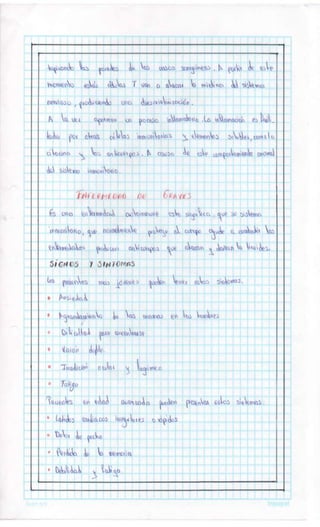 los paredes de los vasos sanguineos. A partir de este
momento estas células T van a atacar la mielina del sistema
nervioso, produciendo una desmielinización.
A la vez aparece un proceso inflamatorio. La inflamación es
por otras células inmunitarias y elementos solubles, como la
citocina y los anticuerpos. A causa de este comportamiento anormal
del sistema inmunitario.
ENFERMEDAD DE GRAVES
Es una enfermedad autoinmune esto significa, que su sistema
inmunitario, que normalmente protege al cuerpo ayuda a combatir las
enfermedades produce anticuerpos que atacan la tiroides.
SIGNOS Y SINTOMAS
Los pacientes mas jovenes pueden tener estos sintomas.
• Ansiedad
• Agrandamiento de las mamas en los hombres
• Dificultad para concentrarse
• Vision doble
• Irritación ocular y lagrimeo
• Fatiga
Pacientes en edad avanzada pueden presentar estos sintomas.
• Latidos cardiacos irregulares o rapidos
• Dolor de pecho
• Perdida de la memoria
• Debilidad y fatiga.